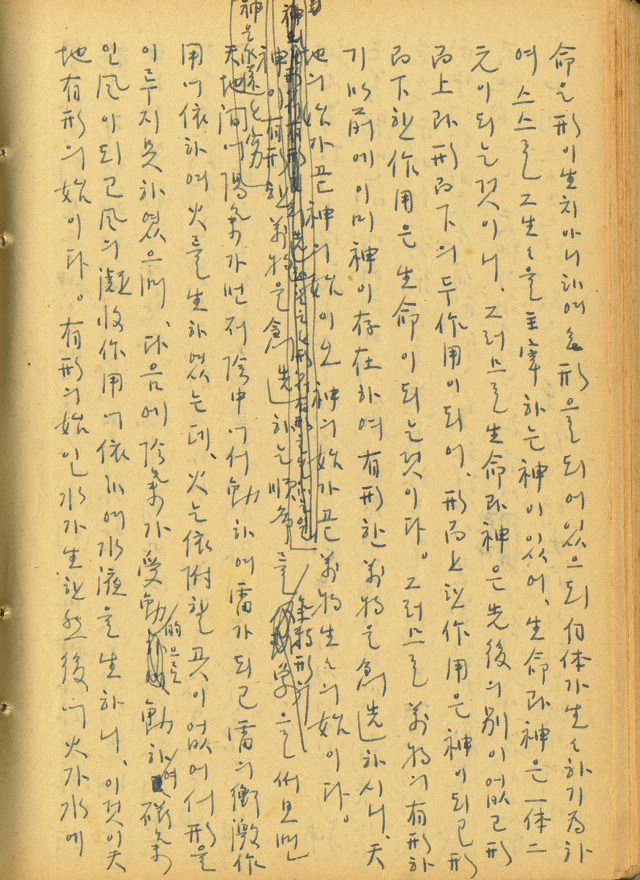 命은 形이 生치 아니하며 形으로 되어 있으되 自体가 生生하기 為하
여 스스로 그 生生을 主宰하는 神이 있어, 生命과 神은 一体二
元이 되는 것이니, 그러므로 生命과 神은 先後의 別이 없고 形
而上과 形而下의 두 作用이 되어, 形而上으 作用은 神이 되고 形
而下한 作用은 生命이 되는 것이다。 그러므로 萬物의 有形하
기 以前에 이미 神이 存在하여 有形한 萬物을 創造하시니, 天
地의 始가 곧 神의 始이오 神의 始가 곧 萬物生生의 始이다。
神이 有形한 萬物을 創造하는 順序를 象으로써 보면
天地間에 陽氣가 먼저 陰中에서 動하여 雷가 되고 雷의 衝激作
用에 依하여 火를 生하였는데, 火는 依附할 곳이 없어서 形을
이루지 못하였으며, 다음에 陰氣가 受動的으로 動하여 磁氣
인 風이 되고 風의 凝收作用에 依하여 水液을 生하니, 이것이 天
地有形의 始이다。 有形의 始인 水가 生한 然後에 火가 水에